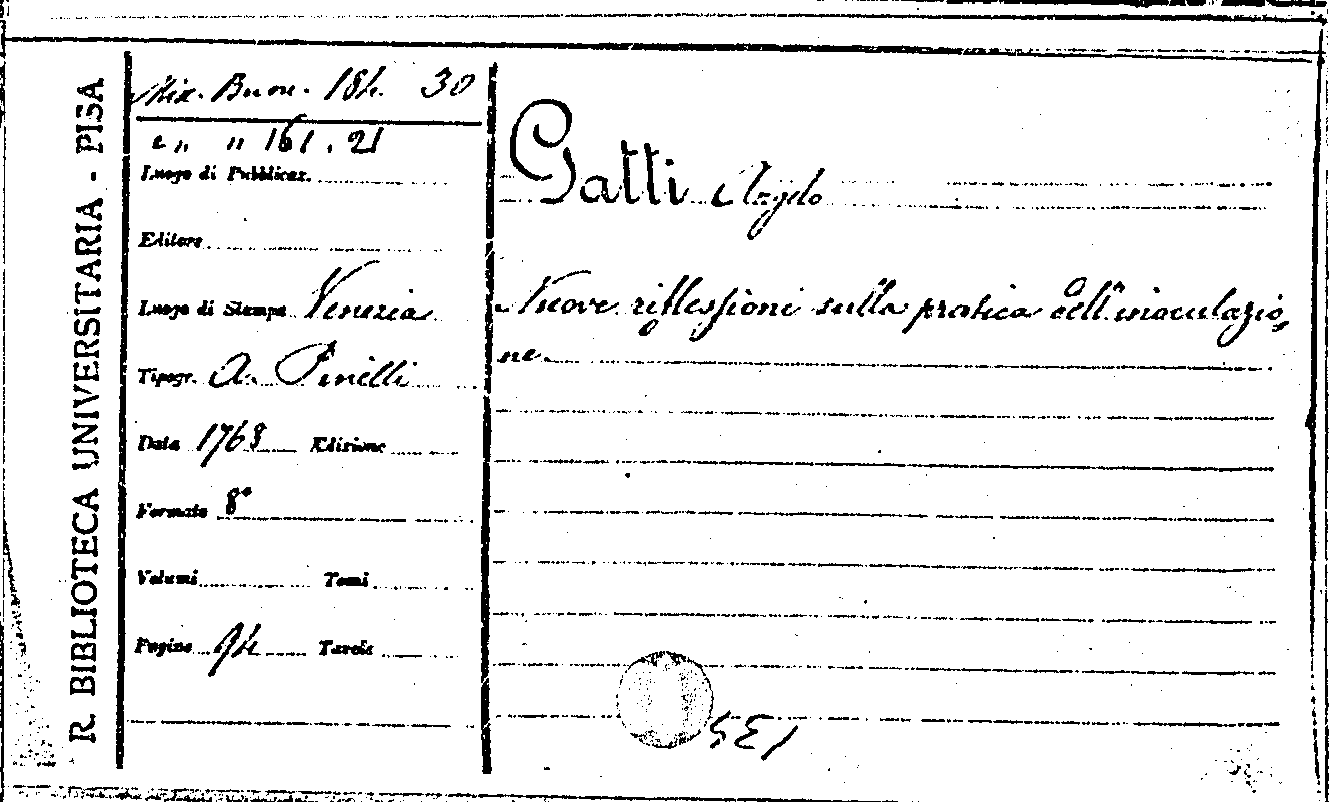 R. BIBLIOTECA UNIVERSITARIA - PISA
Mix. Buon. 184. 30
" " 161. 21
Luogo di Pubblicaz.
Editore
Luogo di Stampa Venezia
Tipogr. A. Pinelli
Data 1768 Edizione
Formato 8°
Volumi Tomi
Pagine 94 Tavole
Gatti Angelo
Nuove riflessioni sulla pratica dell'inoculazio,
ne.
135